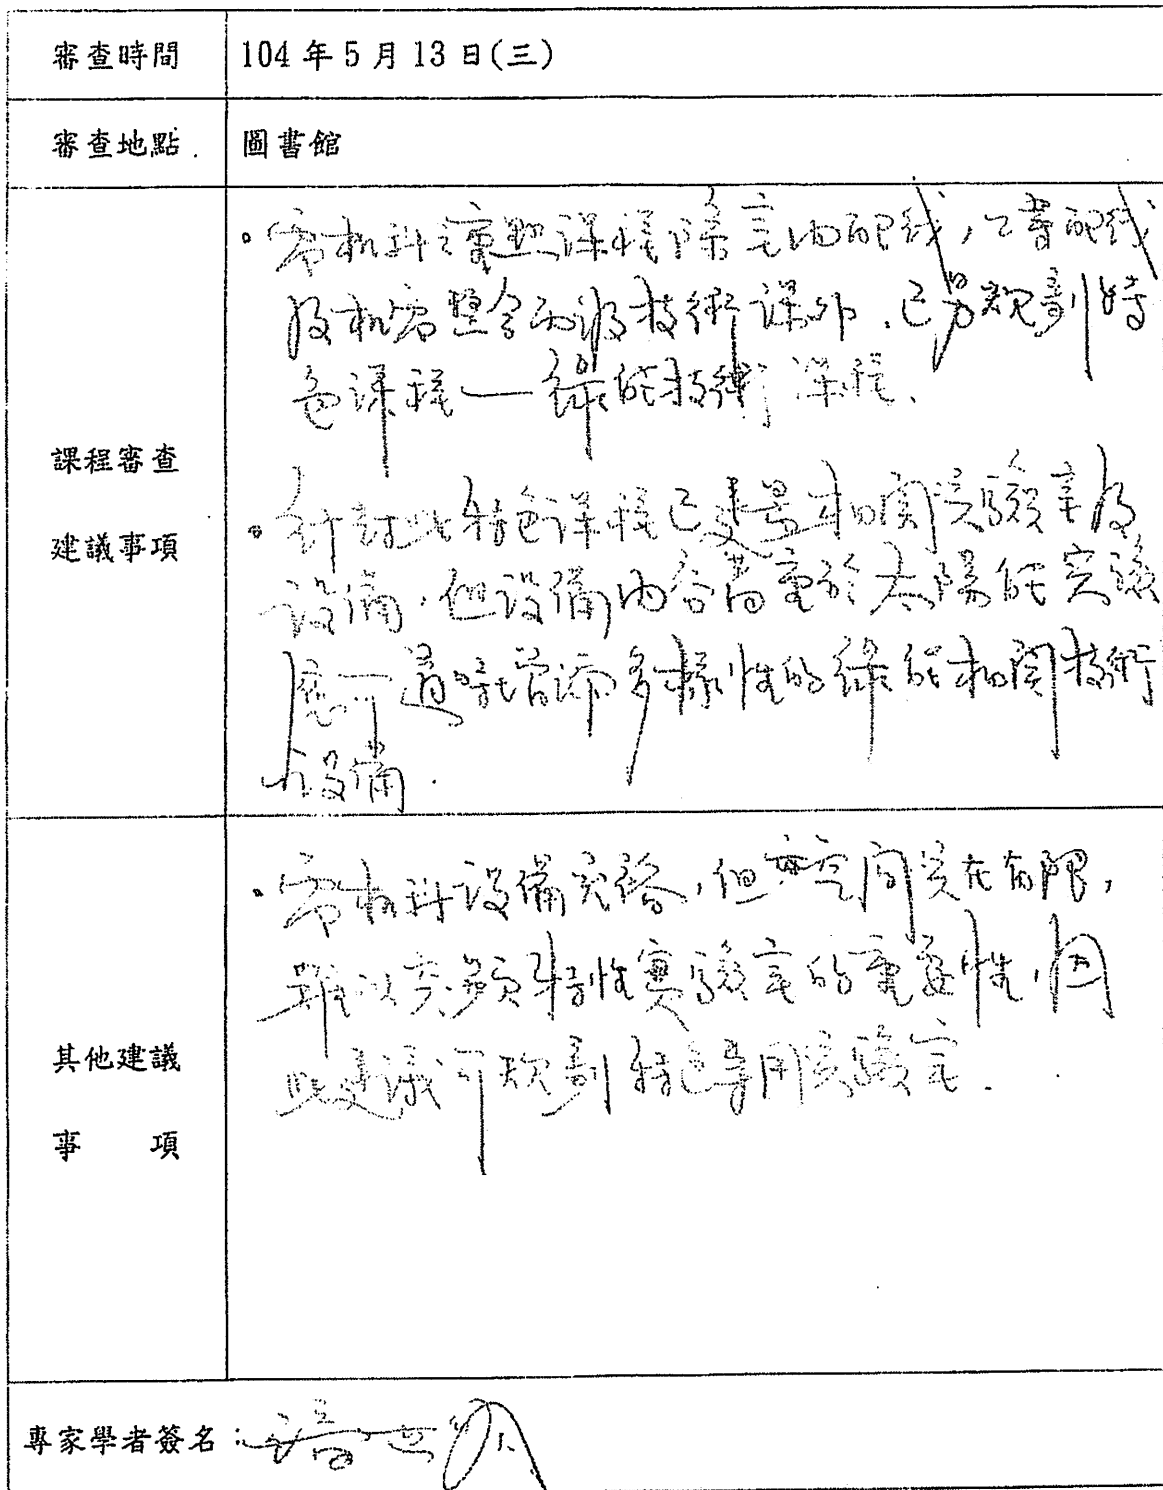 審查時間
104 年 5 月 13 日(三)
審查地點
圖書館
課程審查
建議事項
。電机科之實習課程除室內配線,工業配线
及机電整合丙級技術課外,已另規劃特
色課程—綠能技術課程.
。針對此特色課程已建置相関实驗室及
設備,但設備內容著重於太陽能实験
應可適時增添多樣性的綠能相関技術
設備.
其他建議
事 項
.電机科設備完备,但空间实在有限,
難以突顯特性實驗室的重要性,因
此建議可規劃特色專用实驗室.
專家學者簽名: